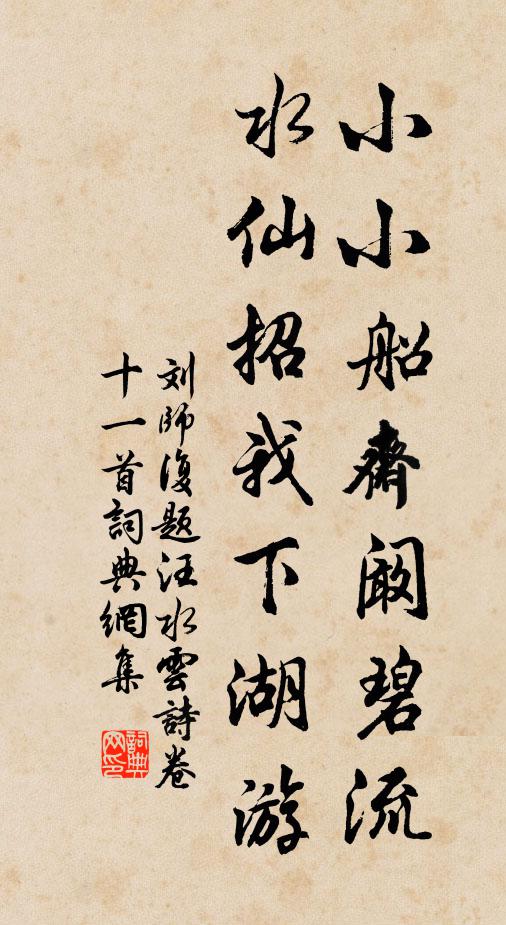 小小船齋闞碧流
水仙招我下湖游
刘師復题汪水雲詩卷
十一首詞典網集
詞典
网印